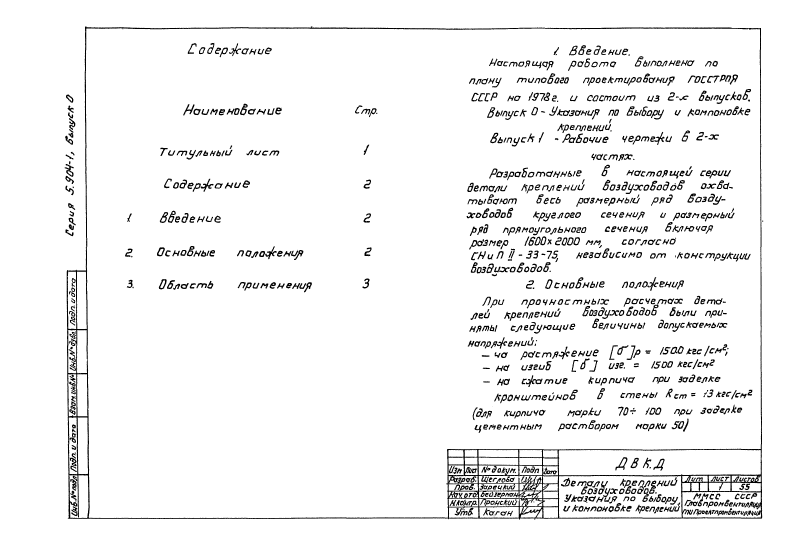 Серия 5.904-1, выпуск 0
Содержание
Наименование Стр.
Титульный лист 1
Содержание 2
1. Введение 2
2. Основные положения 2
3. Область применения 3
1. Введение.
Настоящая работа выполнена по
плану типового проектирования ГОССТРОЯ
СССР на 1978г. и состоит из 2-х выпусков.
Выпуск 0 - Указания по выбору и компоновке
креплений.
Выпуск 1 - Рабочие чертежи в 2-х
частях.
Разработанные в настоящей серии
детали креплений воздуховодов охва-
тывают весь размерный ряд возду-
ховодов круглого сечения и размерный
ряд прямоугольного сечения включая
размер 1600х2000 мм, согласно
СНиП II-33-75, независимо от конструкции
воздуховодов.
2. Основные положения
При прочностных расчетах дета-
лей креплений воздуховодов были при-
няты следующие величины допускаемых
напряжений:
– на растяжение [σ]р = 1500 кгс/см²;
– на изгиб [σ] изг. = 1500 кгс/см²
– на сжатие кирпича при заделке
кронштейнов в стены Rcm = 13 кгс/см²
(для кирпича марки 70÷100 при заделке
цементным раствором марки 50)
Инв.№подл. Подп. и дата Взам.инв.№ Инв.№дубл. Подп. и дата
Изм Лист № докум. Подп. Дата
Разраб. Щеглова
Пров. Зарецкий
Нач.отд. Бейзерман
Н.контр. Пронский
Утв. Каган
ДВКД
Детали креплений
воздуховодов.
Указания по выбору
и компоновке креплений
Лит. Лист Листов
1 55
ММСС СССР
Главпромвентиляция
ГПИ Проектпромвентиляция